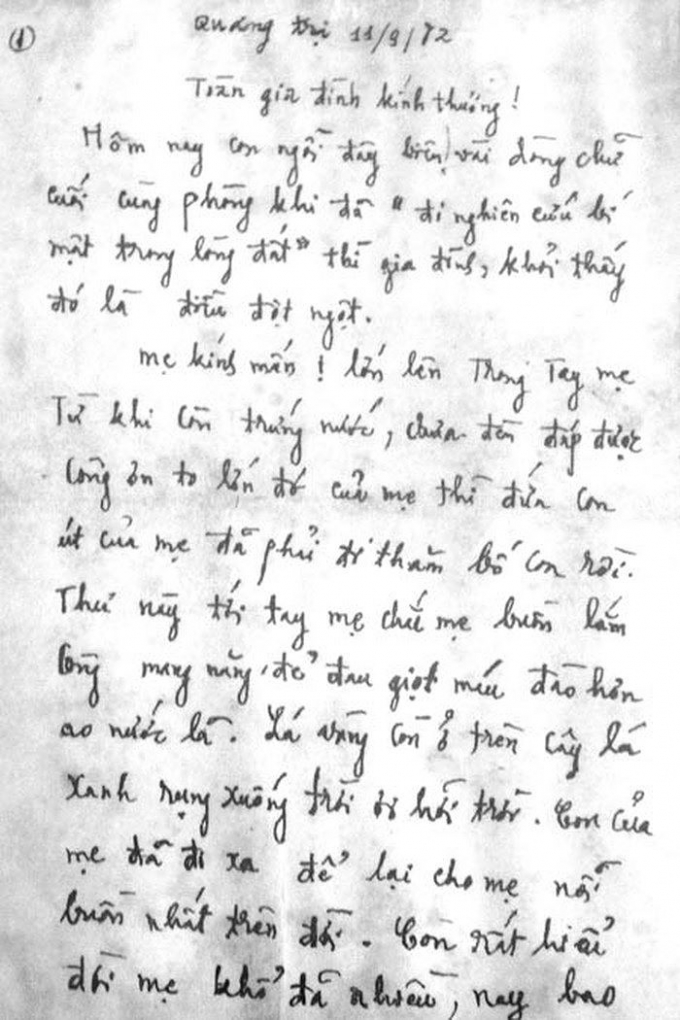 ①
Quảng trị 11/9/72
Toàn gia đình kính thương!
Hôm nay con ngồi đây biên vài dòng chữ
cuối cùng phòng khi đã "đi nghiên cứu bí
mật trong lòng đất" thì gia đình, khỏi thấy
đó là điều đột ngột.
mẹ kính mến! lớn lên trong tay mẹ
Từ khi còn trứng nước, chưa đền đáp được
công ơn to lớn đó của mẹ thì đứa con
út của mẹ đã phải đi thăm bố con rồi.
Thư này tới tay mẹ chắc mẹ buồn lắm
công mang nặng đẻ đau giọt máu đào hơn
ao nước lã. Lá vàng còn ở trên cây lá
xanh rụng xuống trời ơi hỡi trời. Con của
mẹ đã đi xa để lại cho mẹ nỗi
buồn nhất trên đời. Con rất hiểu
đời mẹ khổ đã nhiều, nay bao